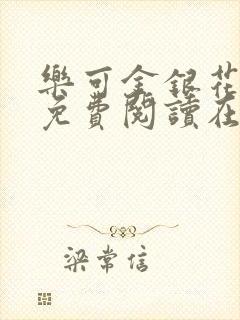 樂可金銀花
免費閱讀在
梁常信